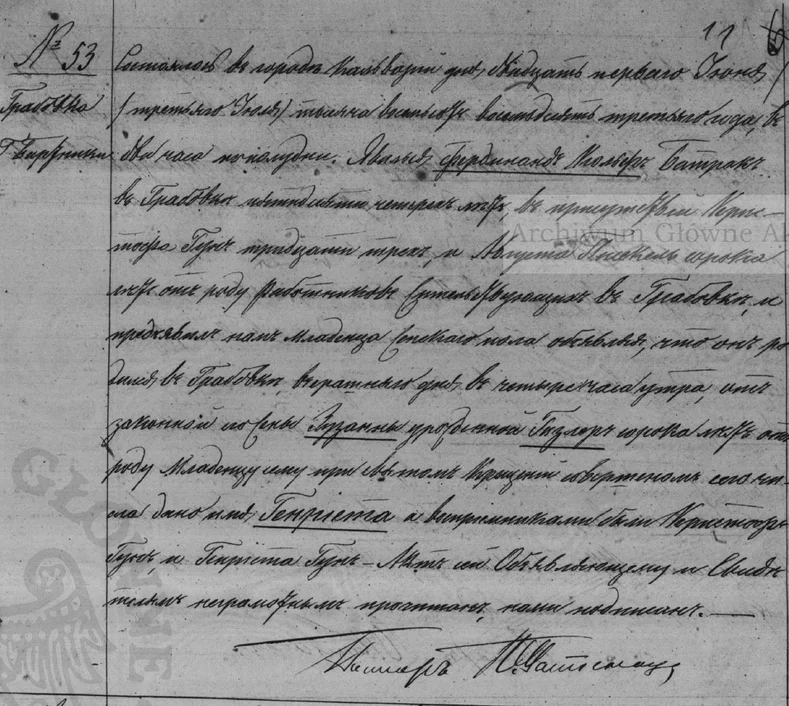 11
№ 53
Грабовка
Состоялось въ городѣ Кальваріи дня двадцать перваго Іюня
/третьяго Іюля/ тысяча восемьсотъ восемьдесятъ третьяго года, въ
два часа по полудни. Явился Фердинандъ Батракъ
въ Грабовкѣ пятидесяти четырехъ лѣтъ, въ присутствіи Крис-
тофа Гунъ тридцати трехъ, и Августа сорока
лѣтъ отъ роду работниковъ жительствующихъ въ Грабовкѣ, и
предъявилъ намъ младенца женскаго пола объявляя, что онъ ро-
дился въ Грабовкѣ, дня въ четыре часа утра, отъ
законной его жены Зузанны урожденной сорока лѣтъ отъ
роду Младенцу сему при Святомъ Крещеніи совершеномъ сего чи-
сла дано имя Генріета а воспріемниками были Кристофъ
Гунъ и Генріета Гунъ – Актъ сей Объявляющему и Свидѣ-
телямъ неграмотнымъ прочитанъ, нами подписанъ. —
Пасторъ
Archiwum Główne Ak
GŁÓWNE